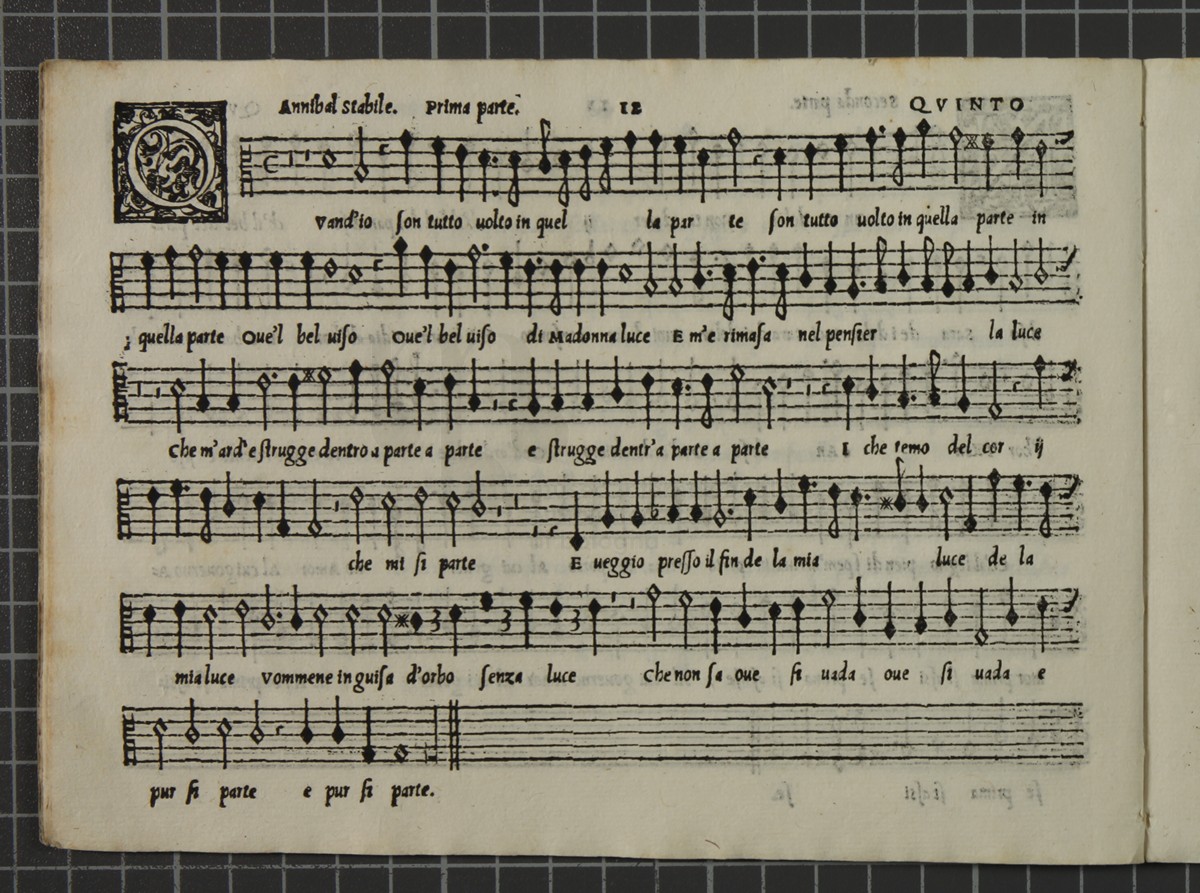 Annibal Stabile. Prima parte. 12 QVINTO
QVand'io son tutto uolto in quel ij la par te son tutto uolto in quella parte in
quella parte Oue'l bel uiso Oue'l bel uiso di Madonna luce E m'e rimasa nel pensier la luce
Che m'ard'e strugge dentro a parte a parte e strugge dentr'a parte a parte I che temo del cor ij
che mi si parte E ueggio presso il fin de la mia luce de la
mia luce Vommene in guisa d'orbo senza luce Che non sa oue si uada oue si uada e
pur si parte e pur si parte.